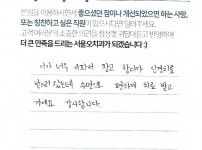 본원을 이용하시면서 좋으셨던 점이나 개선되었으면 하는 사항,
또는 칭찬하고 싶은 직원이 있으시다면 알려주세요.
고객 여러분의 소중한 의견을 정성껏 귀담아듣고 반영하여
더 큰 만족을 드리는 서울오치과가 되겠습니다 :)
이가 너무 아파서 참고 참다가 신경치료
받으러 왔는데 수면으로 편하게 치료 받고
가네요. 감사합니다.